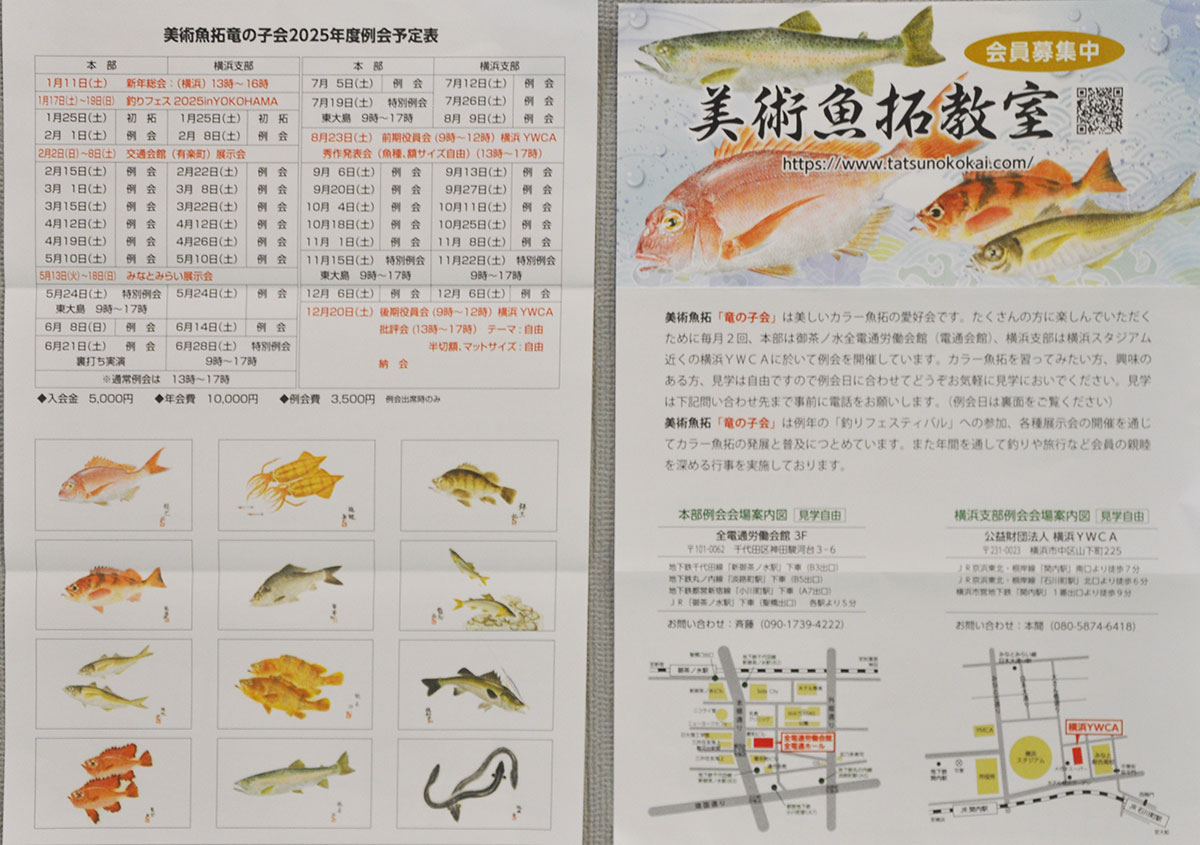 美術魚拓竜の子会2025年度例会予定表
本　部　横浜支部
1月11日(土)　新年総会：(横浜) 13時～16時
1月17日(土)～19日(日)　釣りフェス 2025inYOKOHAMA
1月25日(土)　初　拓　1月25日(土)　初　拓
2月 1日(土)　例　会　2月 8日(土)　例　会
2月2日(日)～8日(土)　交通会館（有楽町）展示会
2月15日(土)　例　会　2月22日(土)　例　会
3月 1日(土)　例　会　3月 8日(土)　例　会
3月15日(土)　例　会　3月22日(土)　例　会
4月12日(土)　例　会　4月12日(土)　例　会
4月19日(土)　例　会　4月26日(土)　例　会
5月10日(土)　例　会　5月10日(土)　例　会
5月13日(火)～18日(日)　みなとみらい展示会
5月24日(土)　特別例会　5月24日(土)　例　会
東大島　9時～17時
6月 8日(日)　例　会　6月14日(土)　例　会
6月21日(土)　例　会　6月28日(土)　特別例会
裏打ち実演　9時～17時
※通常例会は　13時～17時
本　部　横浜支部
7月 5日(土)　例　会　7月12日(土)　例　会
7月19日(土)　特別例会　7月26日(土)　例　会
東大島　9時～17時　8月 9日(土)　例　会
8月23日(土)　前期役員会 (9時～12時) 横浜 YWCA
秀作発表会（魚種、額サイズ自由）(13時～17時)
9月 6日(土)　例　会　9月13日(土)　例　会
9月20日(土)　例　会　9月27日(土)　例　会
10月 4日(土)　例　会　10月11日(土)　例　会
10月18日(土)　例　会　10月25日(土)　例　会
11月 1日(土)　例　会　11月 8日(土)　例　会
11月15日(土)　特別例会　11月22日(土)　特別例会
東大島　9時～17時　9時～17時
12月 6日(土)　例　会　12月 6日(土)　例　会
12月20日(土)　後期役員会 (9時～12時) 横浜 YWCA
批評会 (13時～17時)　テーマ：自由
半切額、マットサイズ：自由
納　会
◆入会金　5,000円　◆年会費　10,000円　◆例会費　3,500円　例会出席時のみ
会員募集中
美術魚拓教室
https://www.tatsunokokai.com/
美術魚拓「竜の子会」は美しいカラー魚拓の愛好会です。たくさんの方に楽しんでいただく
ために毎月２回、本部は御茶ノ水全電通労働会館（電通会館）、横浜支部は横浜スタジアム
近くの横浜ＹＷＣＡに於いて例会を開催しています。カラー魚拓を習ってみたい方、興味の
ある方、見学は自由ですので例会日に合わせてどうぞお気軽に見学においでください。見学
は下記問い合わせ先まで事前に電話をお願いします。（例会日は裏面をご覧ください）
美術魚拓「竜の子会」は例年の「釣りフェスティバル」への参加、各種展示会の開催を通じ
てカラー魚拓の発展と普及につとめています。また年間を通して釣りや旅行など会員の親睦
を深める行事を実施しております。
本部例会会場案内図　見学自由
全電通労働会館 3F
〒101-0062　千代田区神田駿河台３-６
地下鉄千代田線「新御茶ノ水駅」下車（B3出口）
地下鉄丸ノ内線「淡路町駅」下車（B5出口）
地下鉄都営新宿線「小川町駅」下車（A7出口）
ＪＲ「御茶ノ水駅」下車（聖橋出口）　各駅より５分
お問い合わせ：斉藤（090-1739-4222）
横浜支部例会会場案内図　見学自由
公益財団法人 横浜ＹＷＣＡ
〒231-0023　横浜市中区山下町225
ＪＲ京浜東北・根岸線「関内駅」南口より徒歩７分
ＪＲ京浜東北・根岸線「石川町駅」北口より徒歩６分
横浜市営地下鉄「関内駅」１番出口より徒歩９分
お問い合わせ：本間（080-5874-6418）
御茶ノ水駅
本郷通り
外堀通り
全電通労働会館
全電通ホール
靖国通り
横浜YWCA
YMCA
横浜
スタジアム
市役所
地下鉄
関内駅
JR 関内駅
JR 石川町駅